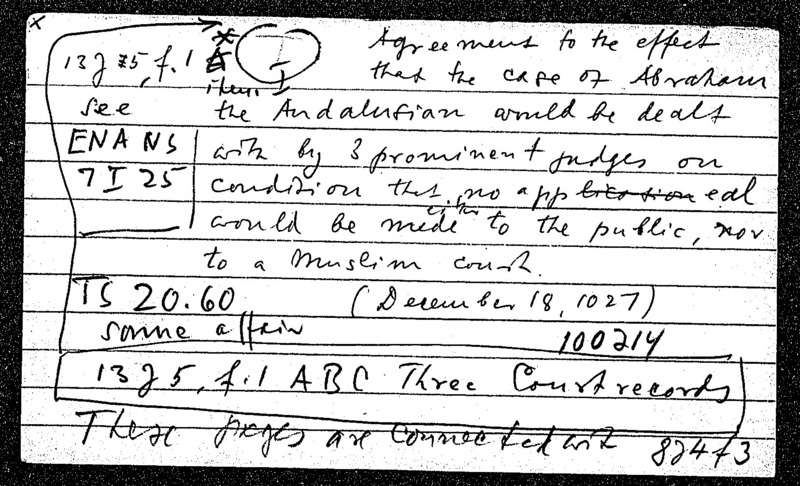 13J 5, f.1
item I
see
ENA NS
7 I 25
Agreement to the effect
that the case of Abraham
the Andalusian would be dealt
with by 3 prominent judges on
condition that no appeal
would be made either to the public, nor
to a Muslim court.
TS 20.60 (December 18, 1027)
same affair 10021Y
13J5, f.1 ABC Three Court records
These pages are connected with 8J4 f 3